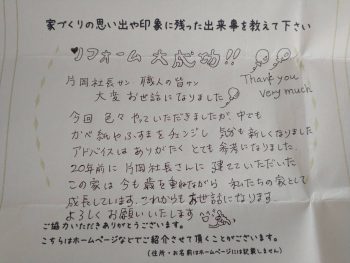 家づくりの思い出や印象に残った出来事を教えて下さい
♡リフォーム大成功!!
片岡社長サン 職人の皆サン
大変お世話になりました
Thank you
very much
今回 色々 やっていただきましたが、中でも
かべ紙やふすまをチェンジし 気分も新しくなりました
アドバイスは ありがたく とても 参考になりました。
20年前に 片岡社長さんに 建てていただいた
この家は 今も歳を重ねながら 私たちの家として
成長しています。これからもお世話になります
よろしくお願いいたします
ご協力いただきありがとうございます。
こちらはホームページなどでご紹介させて頂くことがございます。
(住所・お名前はホームページには記載しません)